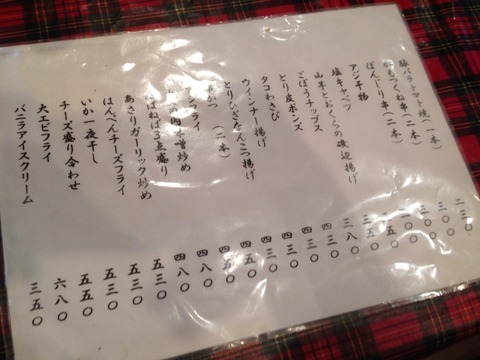 豚バラトマト焼(一本)
つくね串(二本)
ぼんじり串(二本)
アジ干物
塩キャベツ
山芋とおくらの磯辺揚げ
ごぼうチップス
とり皮ポンズ
タコわさび
ウインナー揚げ
とりひざなんこつ揚げ
かつ(二本)
フライ
肉味噌炒め
ねばねば3点盛り
あさりガーリック炒め
はんぺんチーズフライ
いか一夜干し
チーズ盛り合わせ
大エビフライ
バニラアイスクリーム
二三〇
三〇
三八〇
三三〇
四三〇
四三〇
四八〇
四八〇
五三〇
五三〇
五三〇
五五〇
六八〇
三五〇